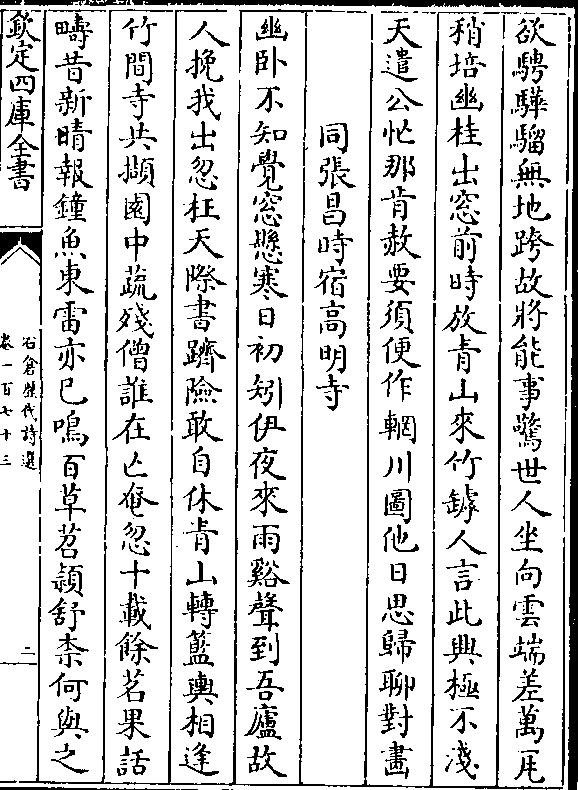 欲騁驊騮無地跨故將能事驚世人坐向雲端差萬瓦
稍培幽桂出窓前時放青山來竹罅人言此興極不淺
天遣公忙那肯赦要須便作輞川圖他日思歸聊對畫
同張昌時宿高明寺
幽卧不知覺窓懸寒日初矧伊夜來雨谿聲到吾廬故
人挽我出忽枉天際書躋險敢自休肯山轉籃輿相逢
竹間寺共擷園中蔬殘僧誰在亡奄忽十載餘茗果話
疇昔新晴報鐘魚東雷亦已鳴百草苕頴舒柰何與之
欽定四庫全書
石倉歷代詩選
卷一百七十三
二